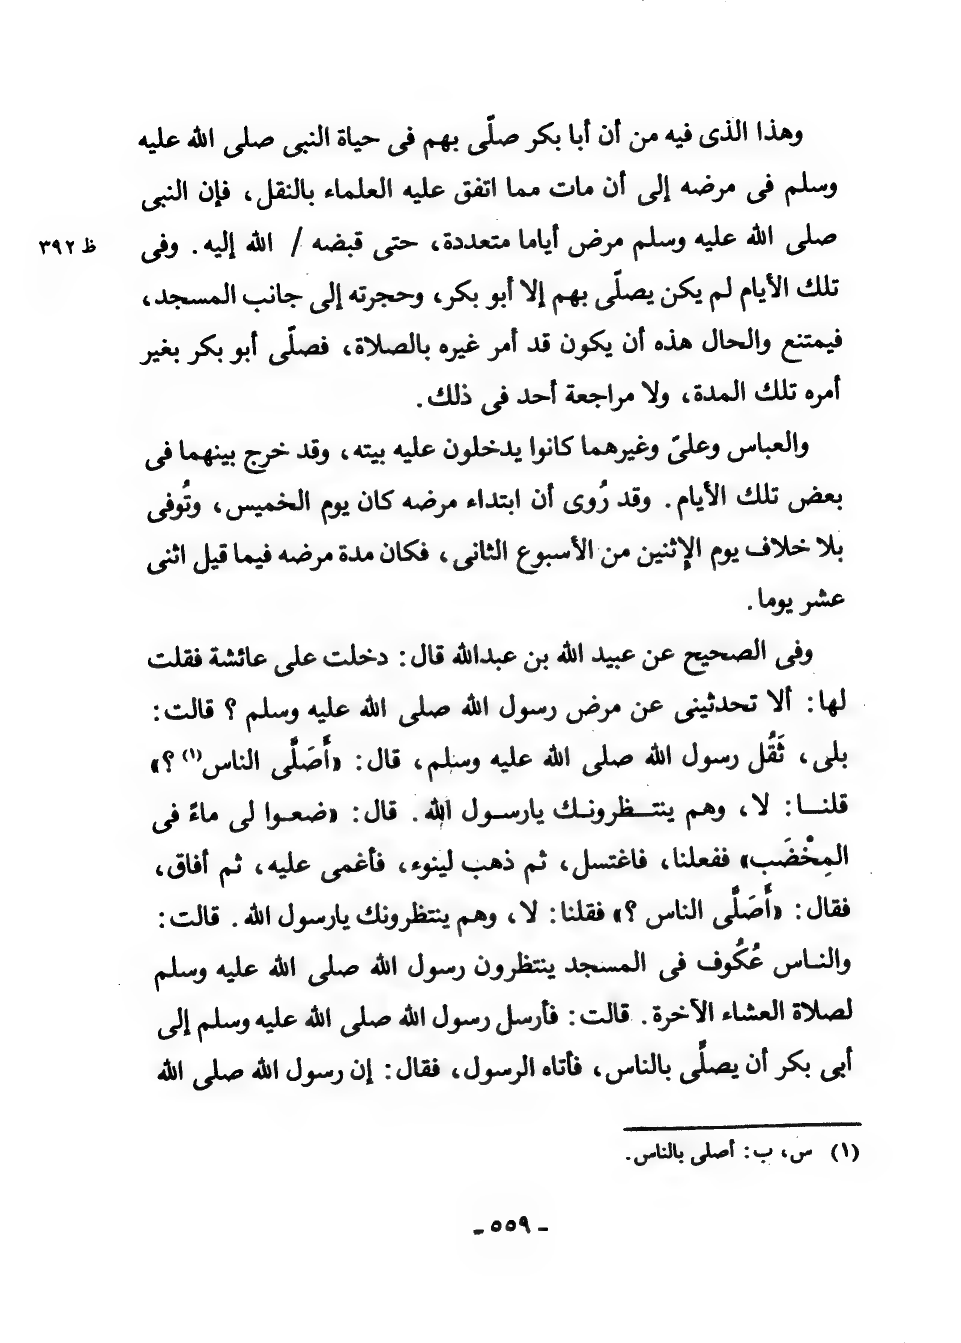 وهذا الذى فيه من أن أبا بكر صلّى بهم فى حياة النبى صلى الله عليه
وسلم فى مرضه إلى أن مات مما اتفق عليه العلماء بالنقل، فإن النبى
صلى الله عليه وسلم مرض أياما متعددة، حتى قبضه / الله إليه. وفى
ظ ٣٩٢
تلك الأيام لم يكن يصلّى بهم إلا أبو بكر، وحجرته إلى جانب المسجد،
فيمتنع والحال هذه أن يكون قد أمر غيره بالصلاة، فصلّى أبو بكر بغير
أمره تلك المدة، ولا مراجعة أحد فى ذلك.
والعباس وعلىّ وغيرهما كانوا يدخلون عليه بيته، وقد خرج بينهما فى
بعض تلك الأيام. وقد رُوى أن ابتداء مرضه كان يوم الخميس، وتُوفى
بلا خلاف يوم الإثنين من الأسبوع الثانى، فكان مدة مرضه فيما قيل اثنى
عشر يوما.
وفى الصحيح عن عبيد الله بن عبدالله قال: دخلت على عائشة فقلت
لها: ألا تحدثينى عن مرض رسول الله صلى الله عليه وسلم ؟ قالت:
بلى، ثَقُل رسول الله صلى الله عليه وسلم، قال: «أَصَلَّى الناس(١) ؟»
قلنــا: لا، وهم ينتــظرونــك يارســول الله. قال: «ضعــوا لى ماءً فى
المِخْضَب» ففعلنا، فاغتسل، ثم ذهب لينوء، فأغمى عليه، ثم أفاق،
فقال: «أَصَلَّى الناس ؟» فقلنا: لا، وهم ينتظرونك يارسول الله. قالت:
والنـاس عُكُوف فى المسجد ينتظرون رسول الله صلى الله عليه وسلم
لصلاة العشاء الآخرة. قالت: فأرسل رسول الله صلى الله عليه وسلم إلى
أبى بكر أن يصلِّى بالناس، فأتاه الرسول، فقال: إن رسول الله صلى الله
(١) س، ب: أصلى بالناس.
ـ ٥٥٩ ـ